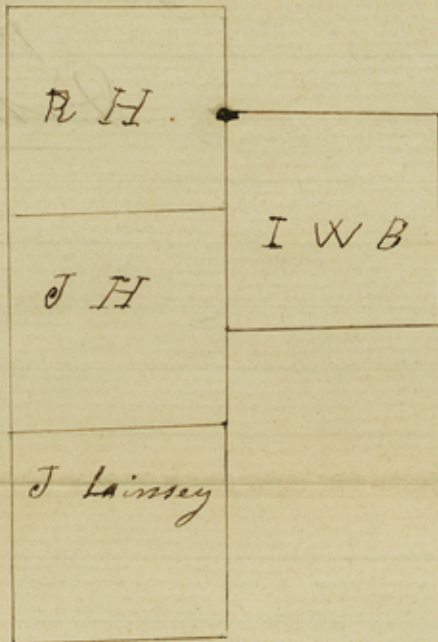 R H
I W B
J H
J Lainsey